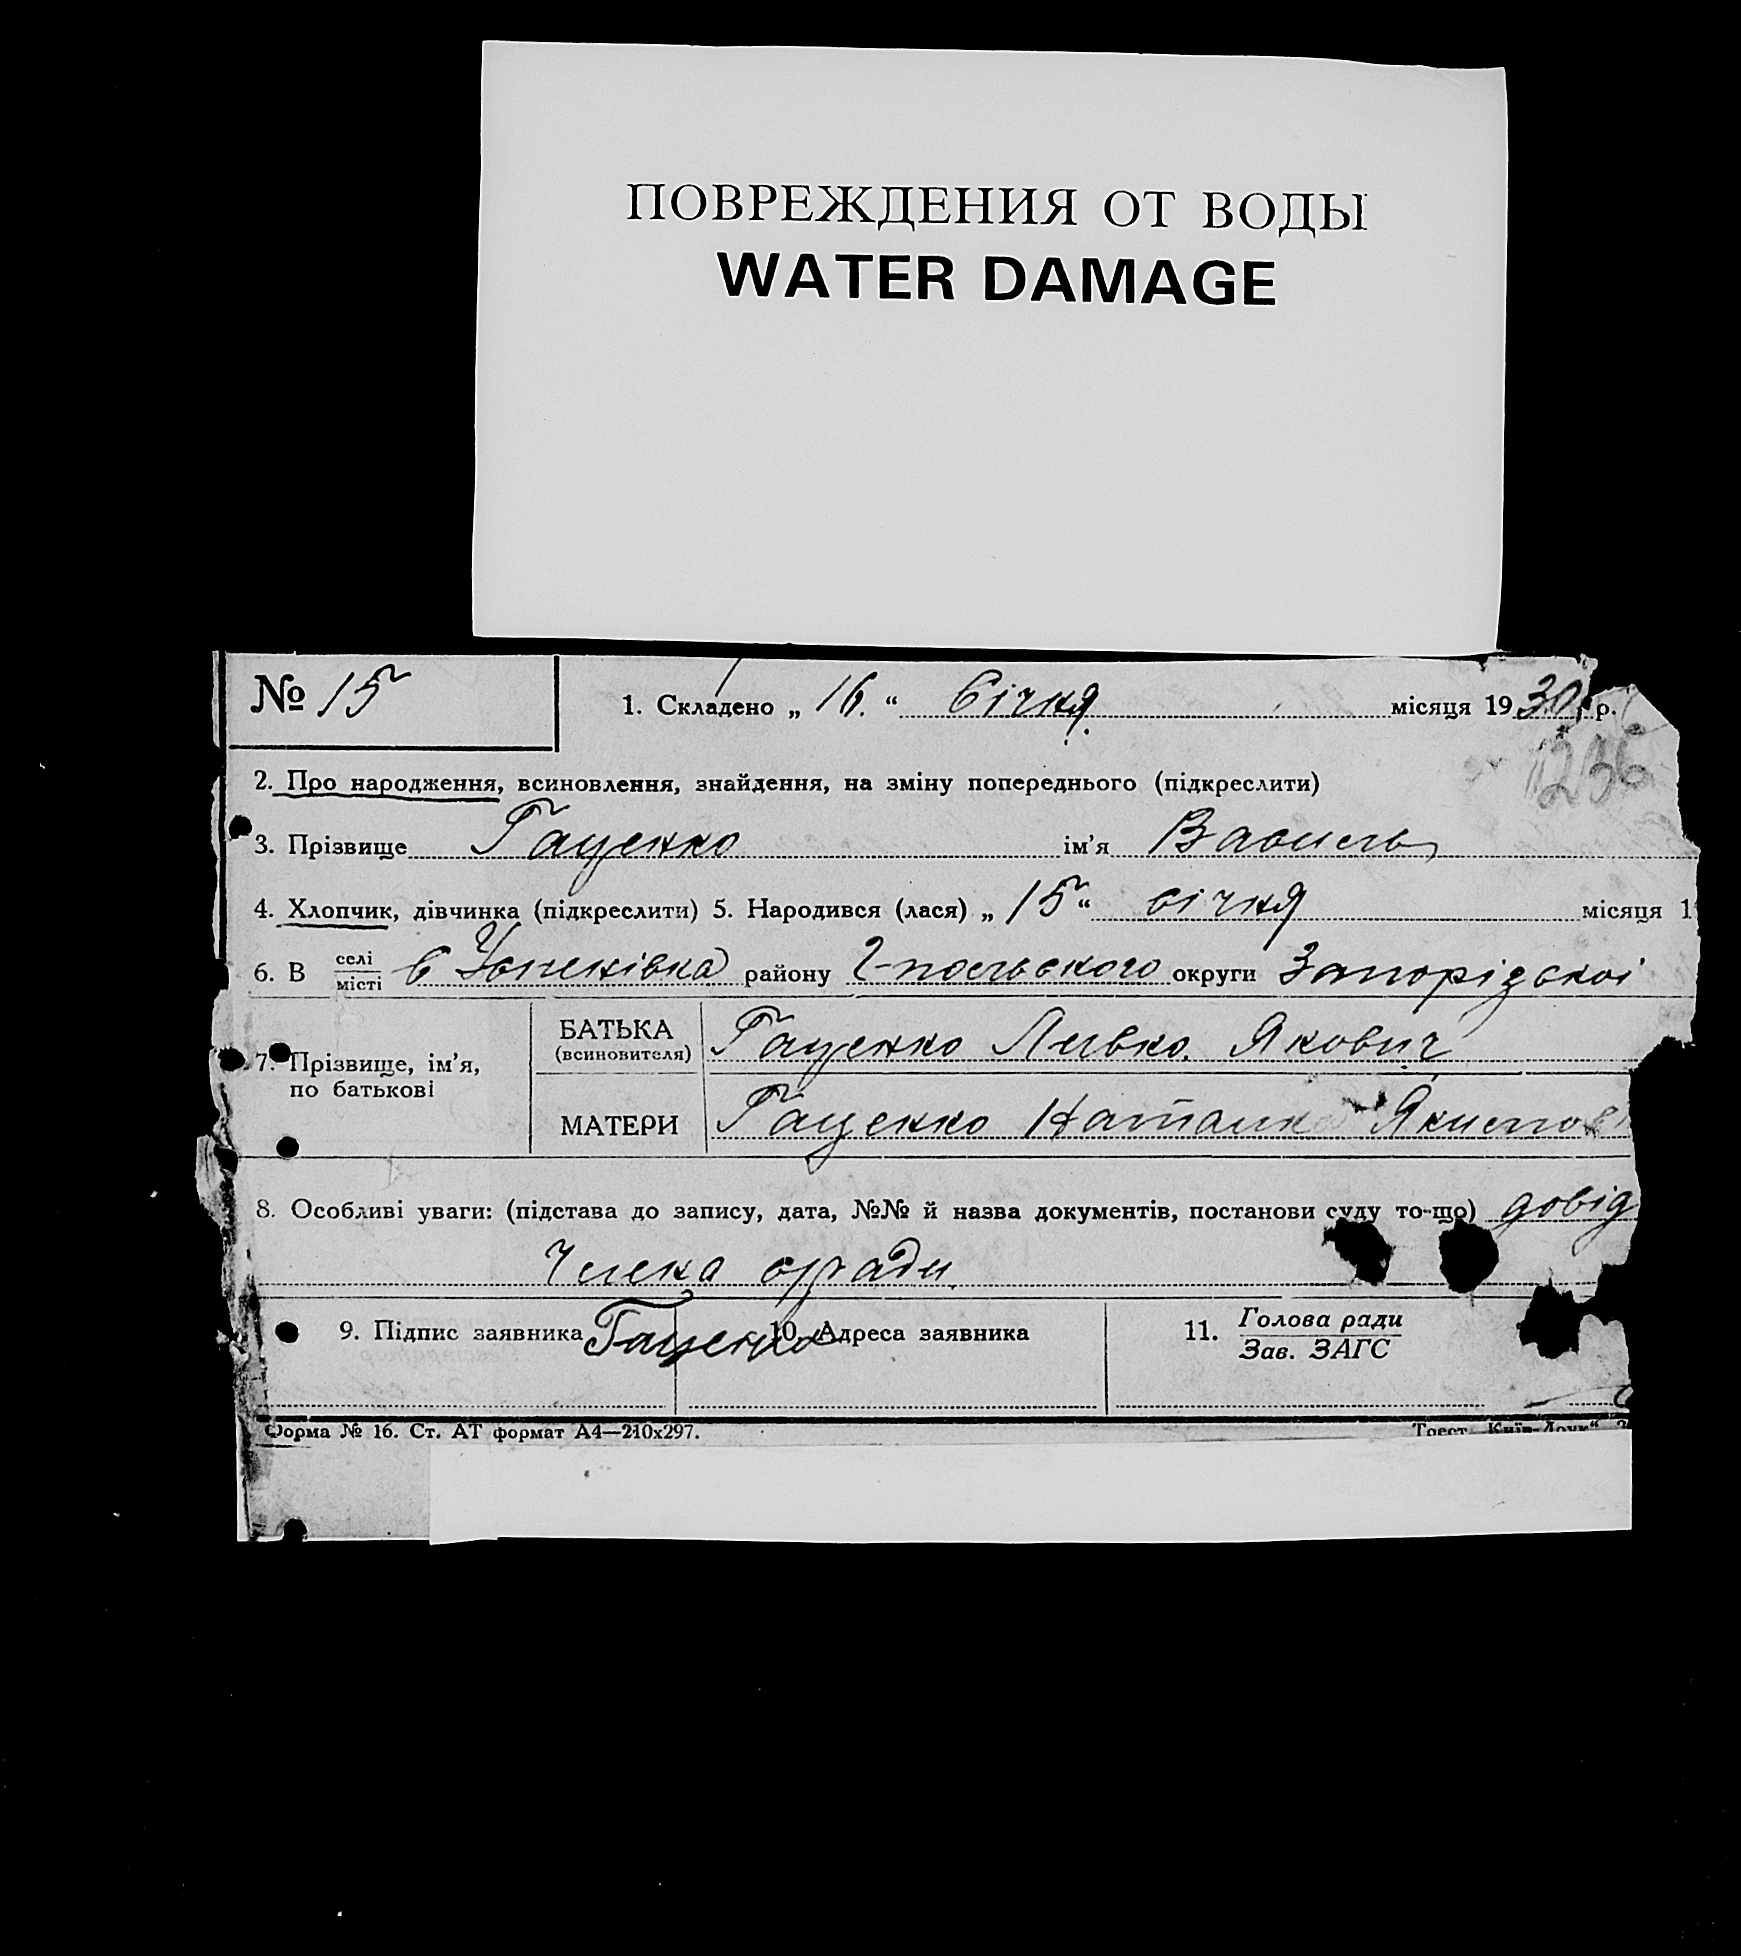 ПОВРЕЖДЕНИЯ ОТ ВОДЫ
WATER DAMAGE
№ 15
1. Складено „ 16. “ Січня місяця 1930 р.
1236
2. Про народження, всиновлення, знайдення, на зміну попереднього (підкреслити)
3. Прізвище Гаценко ім’я Василь
4. Хлопчик, дівчинка (підкреслити) 5. Народився (лася) „ 15 “ січня місяця 1
6. В селі місті с Успенівка району Г-польського округи Запорізської
7. Прізвище, ім’я, по батькові
БАТЬКА (всиновителя) Гаценко Левко Якович
МАТЕРИ Гаценко Наталка
8. Особливі уваги: (підстава до запису, дата, №№ й назва документів, постанови суду то-що) довід
Члена с/ради
9. Підпис заявника Гаценко 10. Адреса заявника 11. Голова ради
Зав. ЗАГС
Форма № 16. Ст. АТ формат А4—210х297. Трест „Київ-Друк“